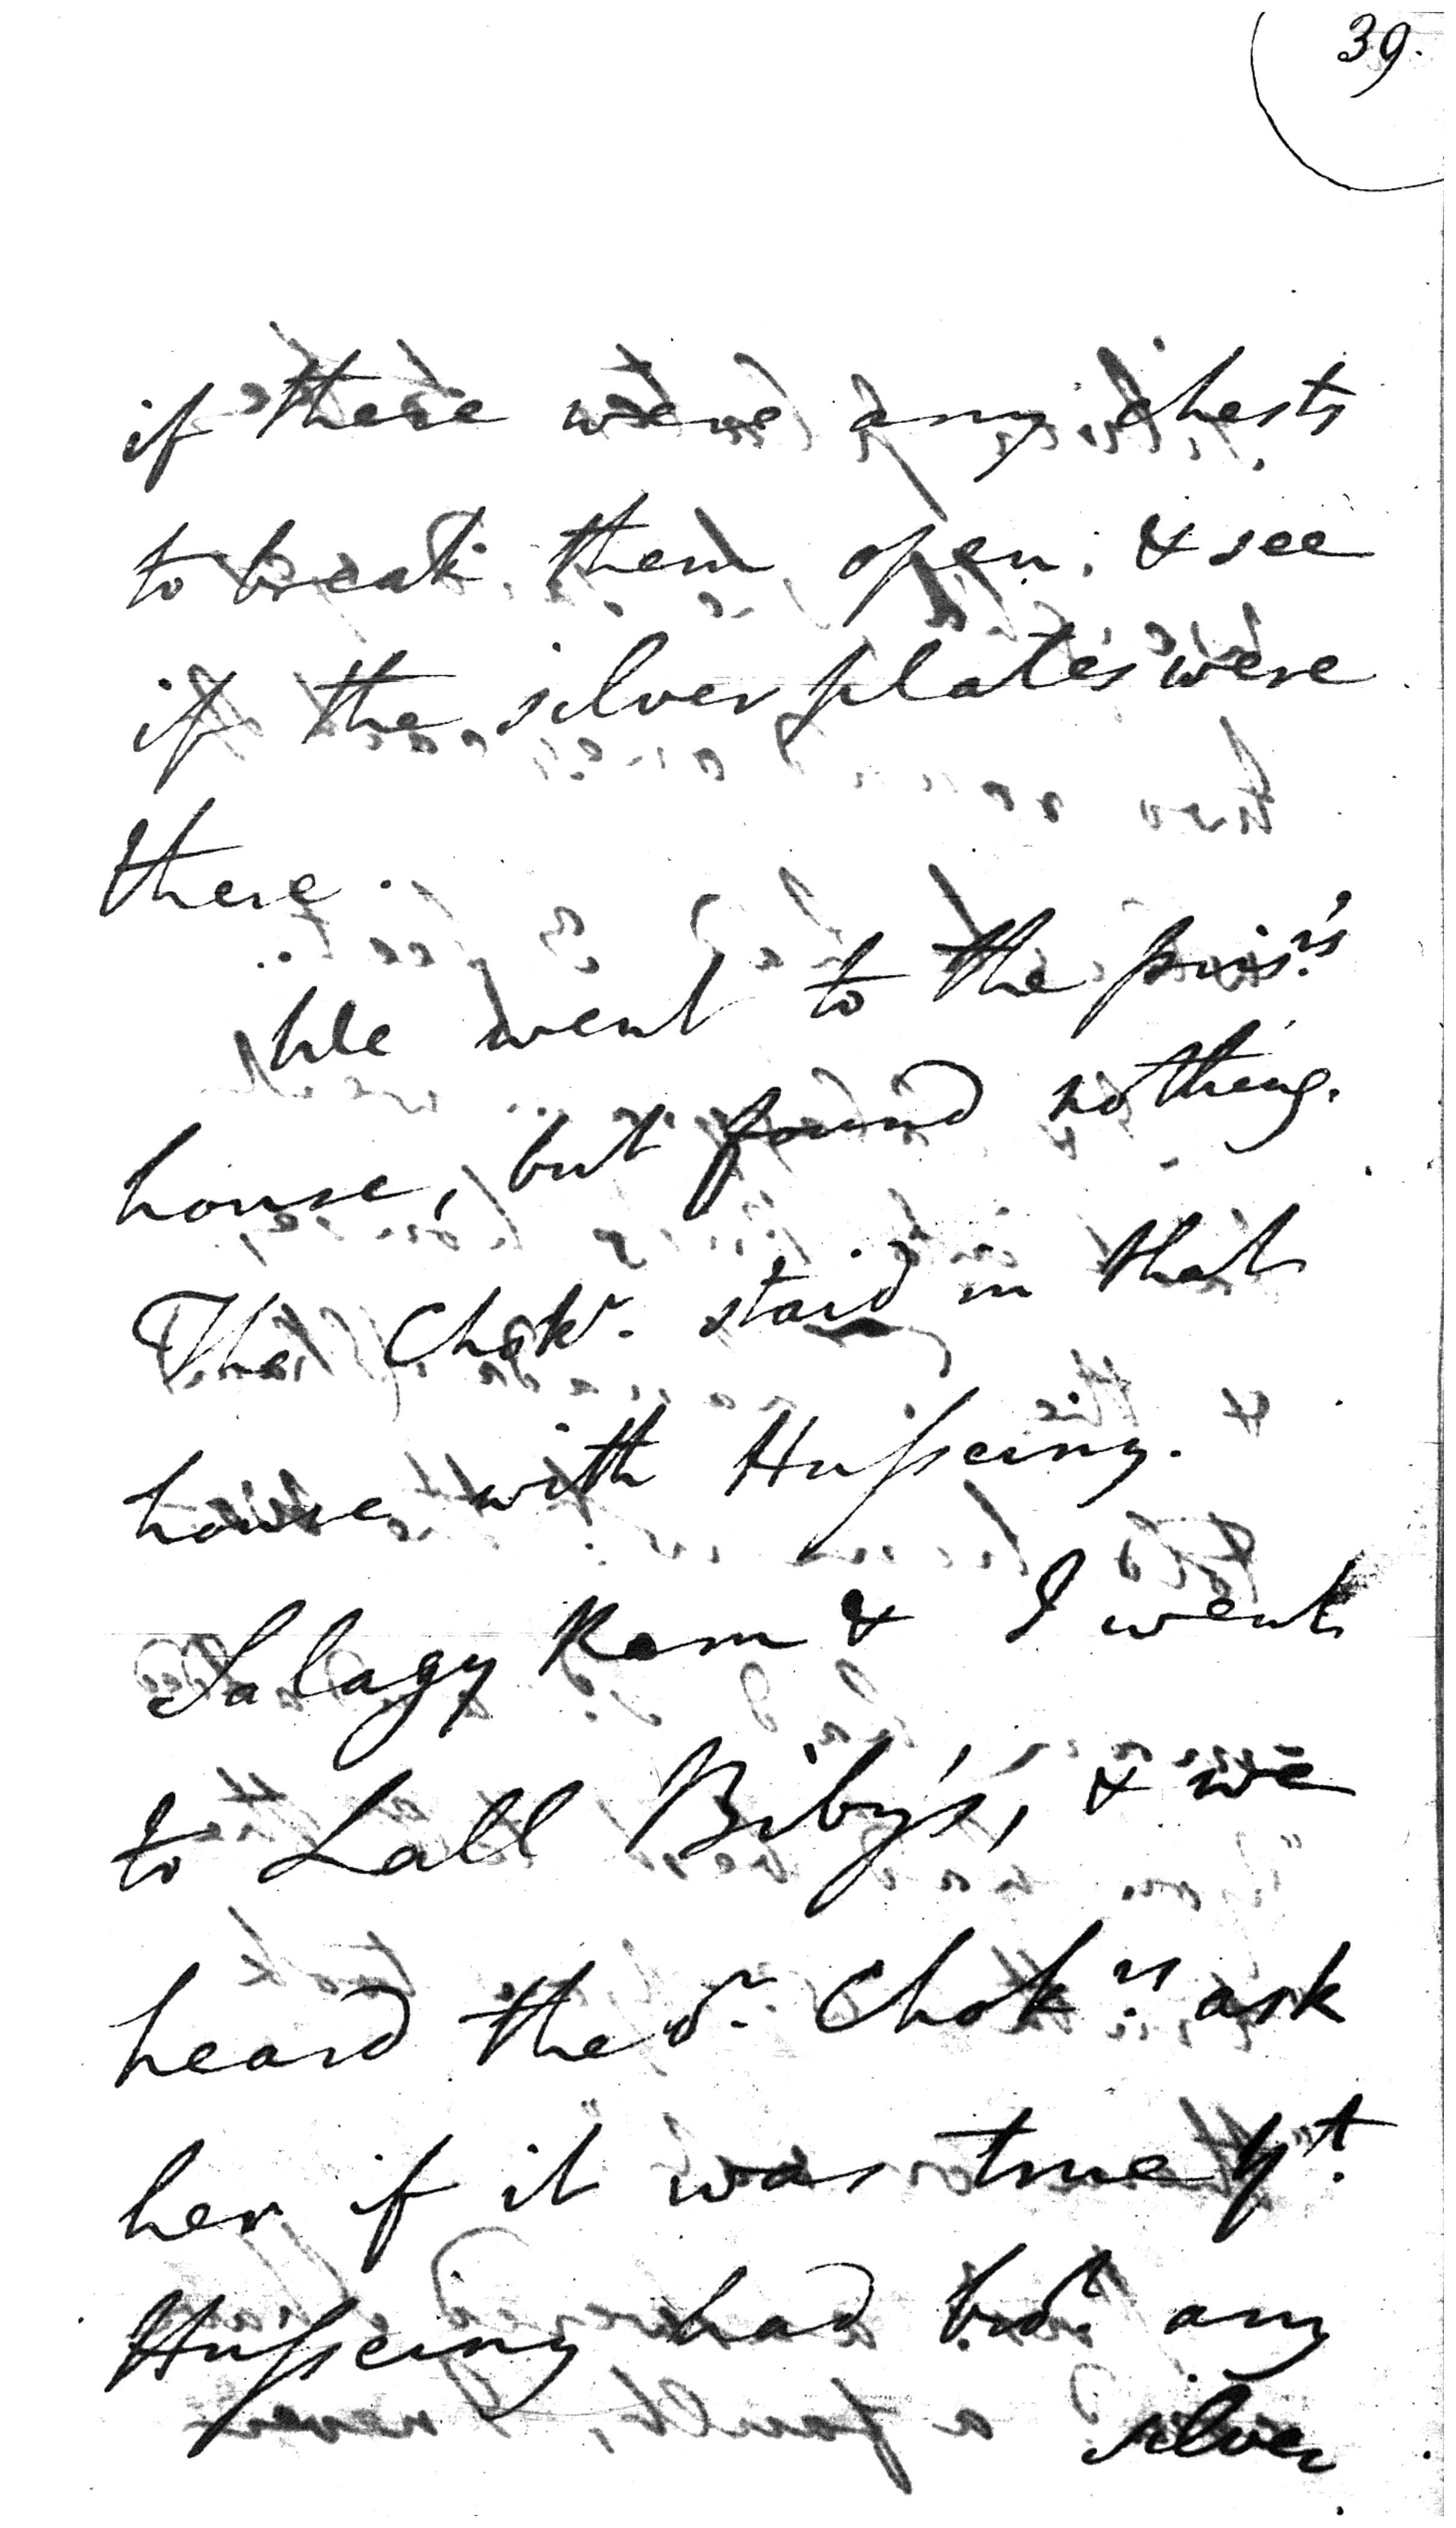 39.
if there were any chests
to break them open, & see
if the silver plates were
there.
We went to the pris.rs
house, but found nothing.
The Chokr. staid in that
house with Husseiny.
Salagy Ram & I went
to Lall Biby's, & we
heard the sr. Chok.rs ask
her if it was true yt.
Husseiny had bro.t any
silver